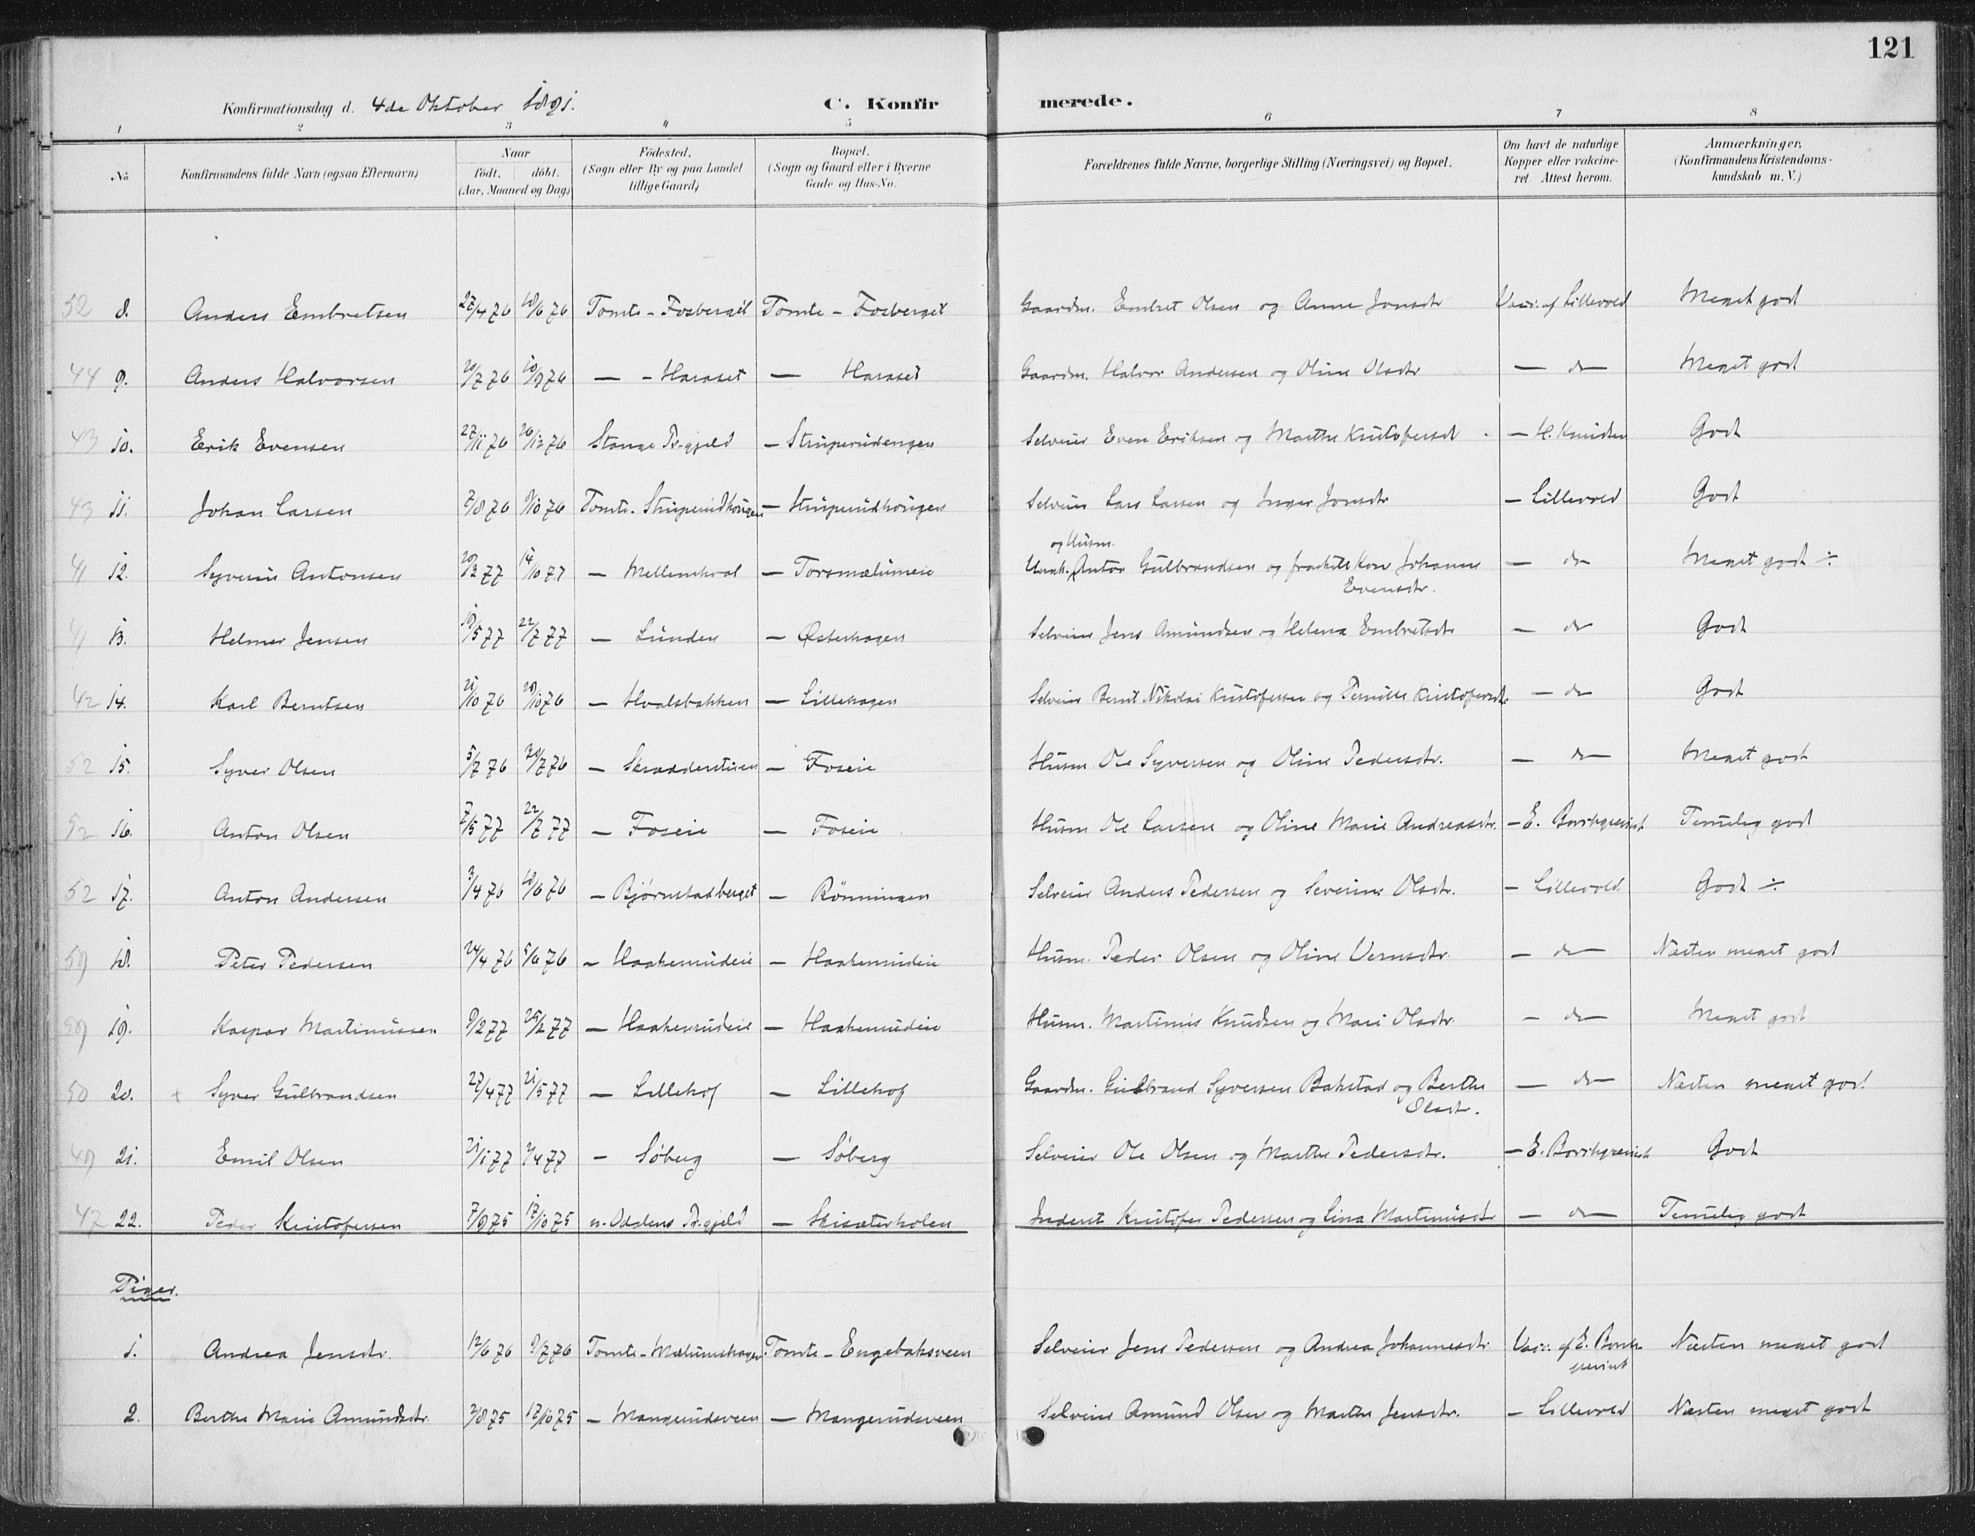 121
Konfirmationsdag d. 4de Oktober 1891. C. Konfirmerede.
1 2 3 4 5 6 7 8
No. Konfirmandens fulde Navn (ogsaa Efternavn) Naar født. døbt. (Aar, Maaned og Dag) Fødested. (Sogn eller By og paa Landet tillige Gaard) Bopæl. (Sogn og Gaard eller i Byerne Gade og Hus-No. Forældrenes fulde Navne, borgerlige Stilling (Næringsvei) og Bopæl. Om havt de naturlige Kopper eller vakcineret. Attest herom. Anmærkninger. (Konfirmandens Kristendomskundskab m. V.)
52 8. Anders Embretsen 27/4 76 18/6 76 Tomte - Fosberget Tomte - Fosberget Gaardm. Embret Olsen og Anne Jonsdtr Vac. af Lillevold Meget godt
44 9. Anders Halvorsen 20/7 76 10/9 76 — - Haraset — Haraset Gaardm. Halvor Andersen og Oline Olsdtr — do — Meget godt
43 10. Erik Evensen 27/11 76 26/12 76 Stange Pr.gjeld — Struperudengen Selveier Even Eriksen og Marthe Kristofersdt — H. Knudsen Godt
43 11. Johan Larsen 7/8 76 9/10 76 Tomte. Struperudhougen — Struperudhougen Selveier Lars Larsen og Inger Jonsdtr — Lillevold Godt
41 12. Syverin Antonsen 20/2 77 14/10 77 — Mellemhval — Torsmælumeie Ungk. og Husm. Anton Gulbrandsen og fraskilt Kone Johanne Evensdtr. — do — Meget godt ÷
41 13. Helmer Jensen 19/5 77 22/7 77 — Lunden — Østerhagen Selveier Jens Amundsen og Helena Embretsdtr — do Godt
42 14. Karl Berntsen 21/10 76 29/10 76 — Hvalsbakken — Lillehagen Selveier Bernt Nikolai Kristofersen og Pernille Kristofersdtr — do Godt
52 15. Syver Olsen 5/7 76 30/7 76 — Skrædderstuen — Foseie Husm Ole Syversen og Oline Pedersdtr. — do — Meget godt
52 16. Anton Olsen 7/5 77 22/7 77 — Foseie — Foseie Husm Ole Larsen og Oline Marie Andreasdtr. — E. Borchgrevink Temelig godt
52 17. Anton Andersen 3/4 76 18/6 76 — Bjørnstadberget — Rønningen Selveier Anders Pedersen og Severine Olsdtr. — Lillevold Godt ÷
59 18. Peter Pedersen 24/4 76 5/6 76 — Haakenrudeie — Haakenrudeie Husm. Peder Olsen og Oline Vernsdtr. — do — Næsten meget godt
59 19. Kaspar Martinussen 9/2 77 25/2 77 — Haakenrudeie — Haakenrudeie Husm. Martinus Knudsen og Mari Olsdtr. — do — Meget godt
50 20. x Syver Gulbrandsen 27/4 77 21/5 77 — Lillehof — Lillehof Gaardm. Gulbrand Syversen Bakstad og Berthe Olsdtr. — do — Næsten meget godt
49 21. Emil Olsen 21/1 77 2/4 77 — Søberg — Søberg Selveier Ole Olsen og Marthe Pedersdtr. — E. Borchgrevink Godt
47 22. Peder Kristofersen 7/9 75 17/10 75 n. Oddens Pr.gjeld — Skisæterholen Inderst Kristofer Pedersen og Lina Martinusdtr — do — Temelig godt
Piger.
1. Andrea Jensdtr. 12/6 76 9/7 76 Tomte - Mælumshagen Tomte - Engebaksveen Selveier Jens Pedersen og Andrea Johannesdtr Vac. af E. Borchgrevink Næsten meget godt
2. Berthe Marie Amundsdtr. 2/8 75 17/10 75 — Mangerudsveen — Mangerudsveen Selveier Amund Olsen og Marthe Jensdtr. — Lillevold Næsten meget godt